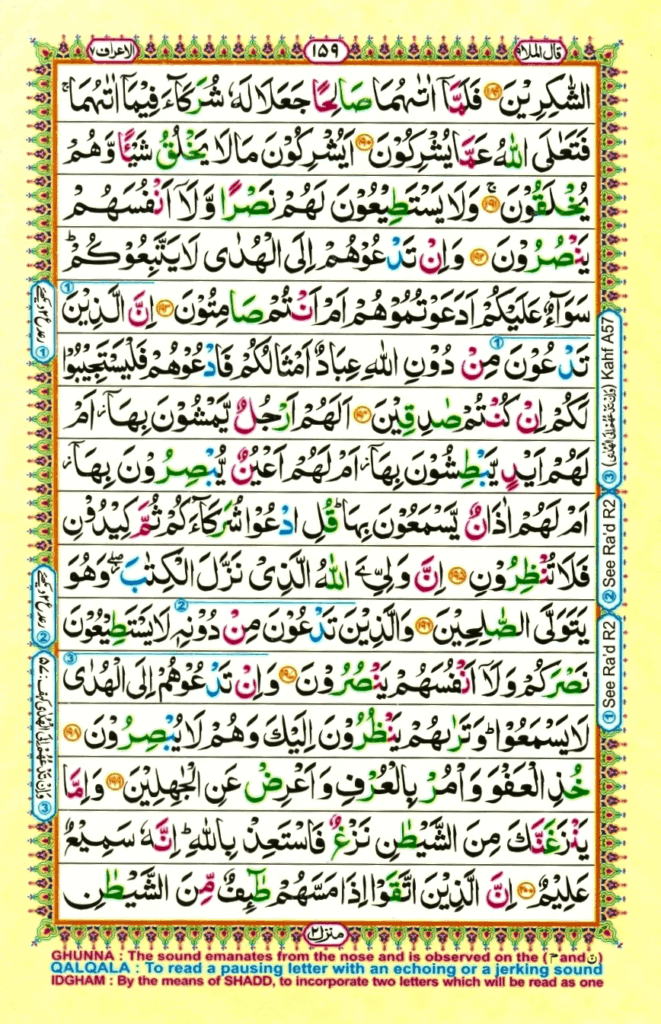 قال الملا ٩
١٥٩
الاعراف ٧
الشّٰكِرِيْنَ ﴿١٨٩﴾ فَلَمَّاۤ اٰتٰىهُمَا صَالِحًا جَعَلَا لَهٗ شُرَكَآءَ فِيْمَاۤ اٰتٰىهُمَا ۚ
فَتَعٰلَى اللّٰهُ عَمَّا يُشْرِكُوْنَ ﴿١٩٠﴾ اَيُشْرِكُوْنَ مَا لَا يَخْلُقُ شَيْـًٔا وَّهُمْ
يُخْلَقُوْنَ ﴿١٩١﴾ۚ وَلَا يَسْتَطِيْعُوْنَ لَهُمْ نَصْرًا وَّلَاۤ اَنْفُسَهُمْ
يَنْصُرُوْنَ ﴿١٩٢﴾ وَاِنْ تَدْعُوْهُمْ اِلَى الْهُدٰى لَا يَتَّبِعُوْكُمْ ؕ
سَوَآءٌ عَلَيْكُمْ اَدَعَوْتُمُوْهُمْ اَمْ اَنْتُمْ صَامِتُوْنَ ﴿١٩٣﴾ اِنَّ الَّذِيْنَ
تَدْعُوْنَ مِنْ دُوْنِ اللّٰهِ عِبَادٌ اَمْثَالُكُمْ فَادْعُوْهُمْ فَلْيَسْتَجِيْبُوْا
لَكُمْ اِنْ كُنْتُمْ صٰدِقِيْنَ ﴿١٩٤﴾ اَلَهُمْ اَرْجُلٌ يَّمْشُوْنَ بِهَاۤ ؗ اَمْ
لَهُمْ اَيْدٍ يَّبْطِشُوْنَ بِهَاۤ ؗ اَمْ لَهُمْ اَعْيُنٌ يُّبْصِرُوْنَ بِهَاۤ ؗ
اَمْ لَهُمْ اٰذَانٌ يَّسْمَعُوْنَ بِهَا ؕ قُلِ ادْعُوْا شُرَكَآءَكُمْ ثُمَّ كِيْدُوْنِ
فَلَا تُنْظِرُوْنِ ﴿١٩٥﴾ اِنَّ وَلِيِّۦَ اللّٰهُ الَّذِيْ نَزَّلَ الْكِتٰبَ ۖؗ وَهُوَ
يَتَوَلَّى الصّٰلِحِيْنَ ﴿١٩٦﴾ وَالَّذِيْنَ تَدْعُوْنَ مِنْ دُوْنِهٖ لَا يَسْتَطِيْعُوْنَ
نَصْرَكُمْ وَلَاۤ اَنْفُسَهُمْ يَنْصُرُوْنَ ﴿١٩٧﴾ وَاِنْ تَدْعُوْهُمْ اِلَى الْهُدٰى
لَا يَسْمَعُوْا ؕ وَتَرٰىهُمْ يَنْظُرُوْنَ اِلَيْكَ وَهُمْ لَا يُبْصِرُوْنَ ﴿١٩٨﴾
خُذِ الْعَفْوَ وَاْمُرْ بِالْعُرْفِ وَاَعْرِضْ عَنِ الْجٰهِلِيْنَ ﴿١٩٩﴾ وَاِمَّا
يَنْزَغَنَّكَ مِنَ الشَّيْطٰنِ نَزْغٌ فَاسْتَعِذْ بِاللّٰهِ ؕ اِنَّهٗ سَمِيْعٌ
عَلِيْمٌ ﴿٢٠٠﴾ اِنَّ الَّذِيْنَ اتَّقَوْا اِذَا مَسَّهُمْ طٰٓئِفٌ مِّنَ الشَّيْطٰنِ
منزل ٢
③ (وَاِنْ تَدْعُهُمْ اِلَى الْهُدٰى) Kahf A57
② See Ra'd R2
① See Ra'd R2
GHUNNA : The sound emanates from the nose and is observed on the (م and ن)
QALQALA : To read a pausing letter with an echoing or a jerking sound
IDGHAM : By the means of SHADD, to incorporate two letters which will be read as one